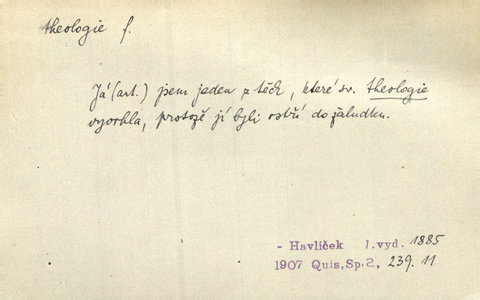 theologie f.
Já (aut.) jsem jeden z těch, které sv. theologie
vyvrhla, protože jí byli ostří do žaludku.
- Havlíček 1. vyd. 1885
1907 Quis, Sp. 2, 239. 11